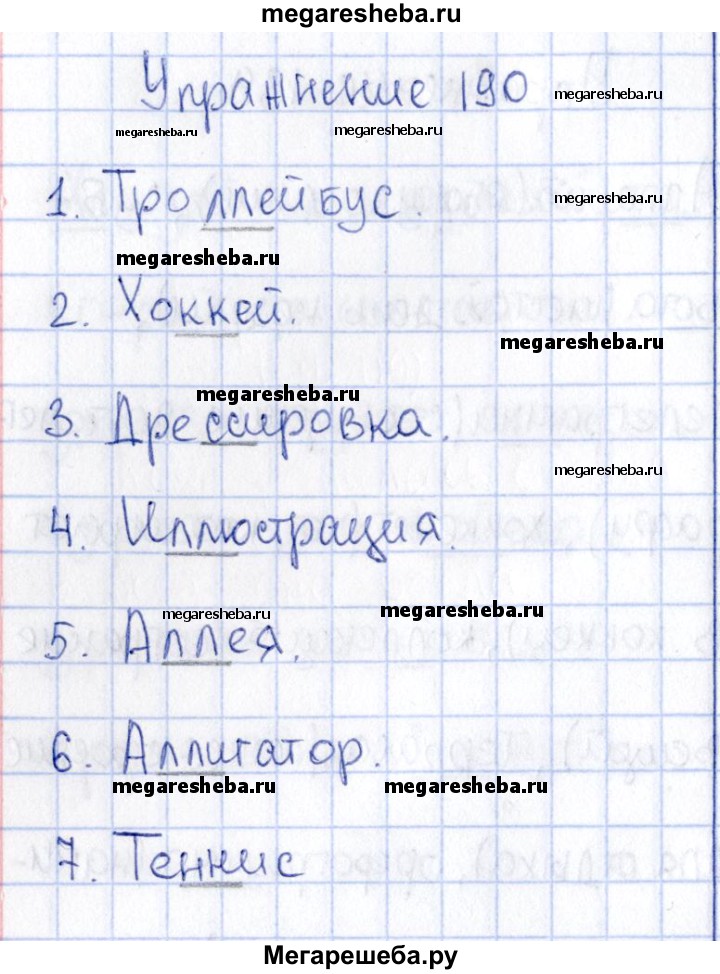 megaresheba.ru
Упражнение 190
megaresheba.ru
megaresheba.ru
megaresheba.ru
1. Троллейбус.
megaresheba.ru
megaresheba.ru
2. Хоккей.
megaresheba.ru
megaresheba.ru
3. Дрессировка.
megaresheba.ru
4. Иллюстрация.
megaresheba.ru
megaresheba.ru
5. Аллея.
6. Аллигатор.
megaresheba.ru
megaresheba.ru
7. Теннис
Мегарешеба.ру